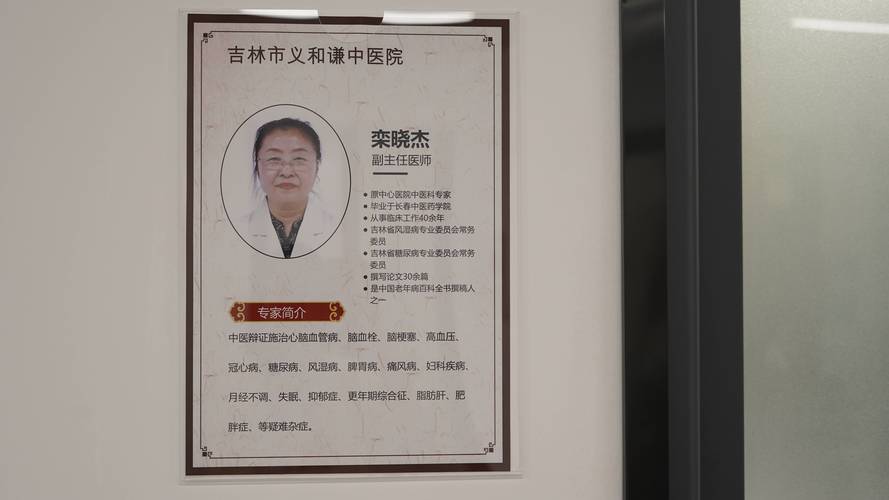 吉林市义和谦中医院
栾晓杰
副主任医师
原中心医院中医科专家
毕业于长春中医药学院
从事临床工作40余年
吉林省风湿病专业委员会常务
委员
吉林省糖尿病专业委员会常务
委员
撰写论文30余篇
是中国老年病百科全书撰稿人
之一
专家简介
中医辩证施治心脑血管病、脑血栓、脑梗塞、高血压、
冠心病、糖尿病、风湿病、脾胃病、痛风病、妇科疾病、
月经不调、失眠、抑郁症、更年期综合征、脂肪肝、肥
胖症、等疑难杂症。